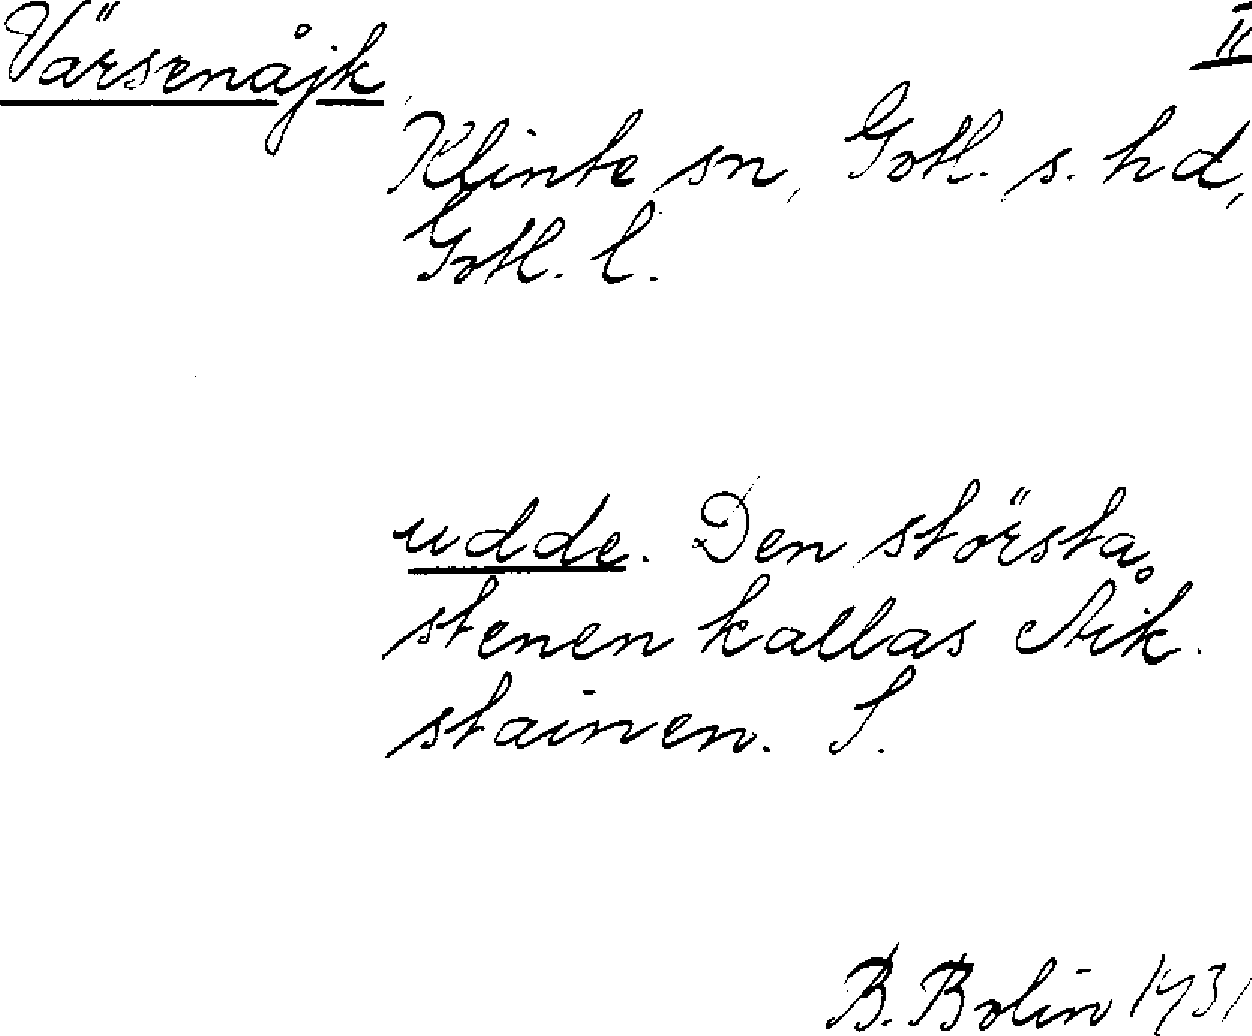 Värsenåjk II
Klinte sn, Gotl. s. hd,
Gotl. l.
udde. Den största
stenen kallas Åik-
stainen. S.
B. Bolin 1931